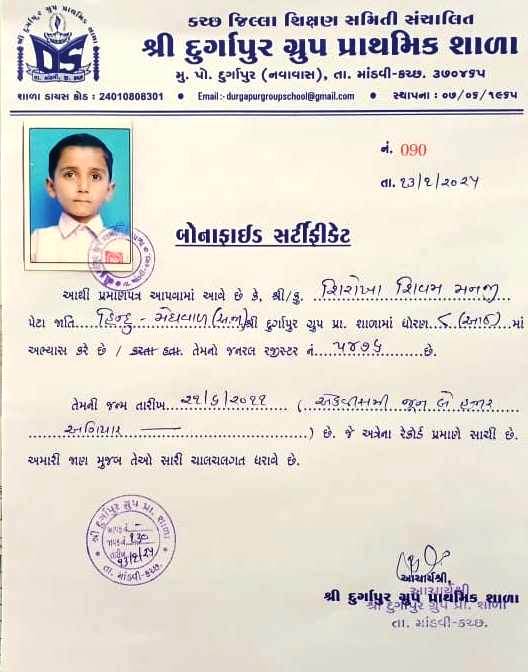 કચ્છ જિલ્લા શિક્ષણ સમિતી સંચાલિત
શ્રી દુર્ગાપુર ગ્રુપ પ્રાથમિક શાળા
મુ. પો. દુર્ગાપુર (નવાવાસ), તા. માંડવી-કચ્છ. ૩૭૦૪૬૫
શાળા ડાયસ કોડ : 24010808301 • Email:- durgapurgroupschool@gmail.com • સ્થાપના : ૦૭/૦૬/૧૯૬૫
નં. 090
તા. ૧૩/૨/૨૦૨૫
બોનાફાઈડ સર્ટીફીકેટ
આથી પ્રમાણપત્ર આપવામાં આવે છે કે, શ્રી/કુ. શિરોખા શિવમ મનજી
પેટા જાતિ હિન્દુ - મેઘવાળ (અ.જા) શ્રી દુર્ગાપુર ગ્રુપ પ્રા. શાળામાં ધોરણ ૮ (આઠ) માં
અભ્યાસ કરે છે / કરતા હતા. તેમનો જનરલ રજીસ્ટર નં. ૫૪૭૬ છે.
તેમની જન્મ તારીખ ૨૧/૬/૨૦૧૧ (એકવીસમી જૂન બે હજાર
અગિયાર) છે. જે અત્રેના રેકોર્ડ પ્રમાણે સાચી છે.
અમારી જાણ મુજબ તેઓ સારી ચાલચલગત ધરાવે છે.
શ્રી દુર્ગાપુર ગ્રુપ પ્રા. શાળા
જાવક નં. ૧૩૦
તારીખ ૧૩/૨/૨૫
તા. માંડવી-કચ્છ.
આચાર્યશ્રી,
શ્રી દુર્ગાપુર ગ્રુપ પ્રાથમિક શાળા
આચાર્યશ્રી
શ્રી દુર્ગાપુર ગ્રુપ પ્રા. શાળા
તા. માંડવી-કચ્છ.